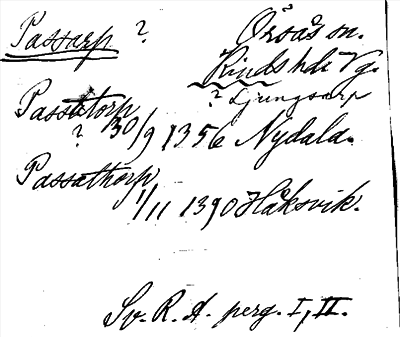 Passarp ? Örsås sn.
Kinds hd. Vg.
? Ljungsarp
Passatorp
? 30/9 1356 Nydala.
Passathorp
1/11 1390 Håksvik.
Sv. R. A. perg. I, II.